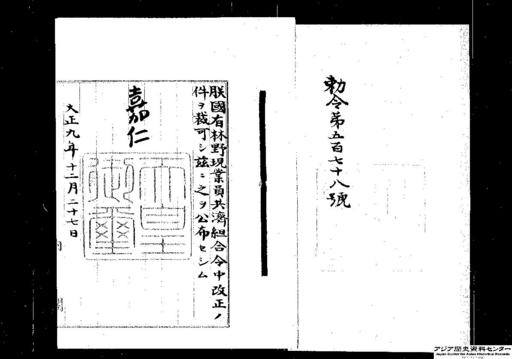 勅令第五百七十八號
朕國有林野現業員共濟組合令中改正ノ
件ヲ裁可シ茲ニ之ヲ公布セシム
嘉仁
天皇
御璽
大正九年十二月二十七日
アジア歴史資料センター
Japan Center for Asian Historical Records